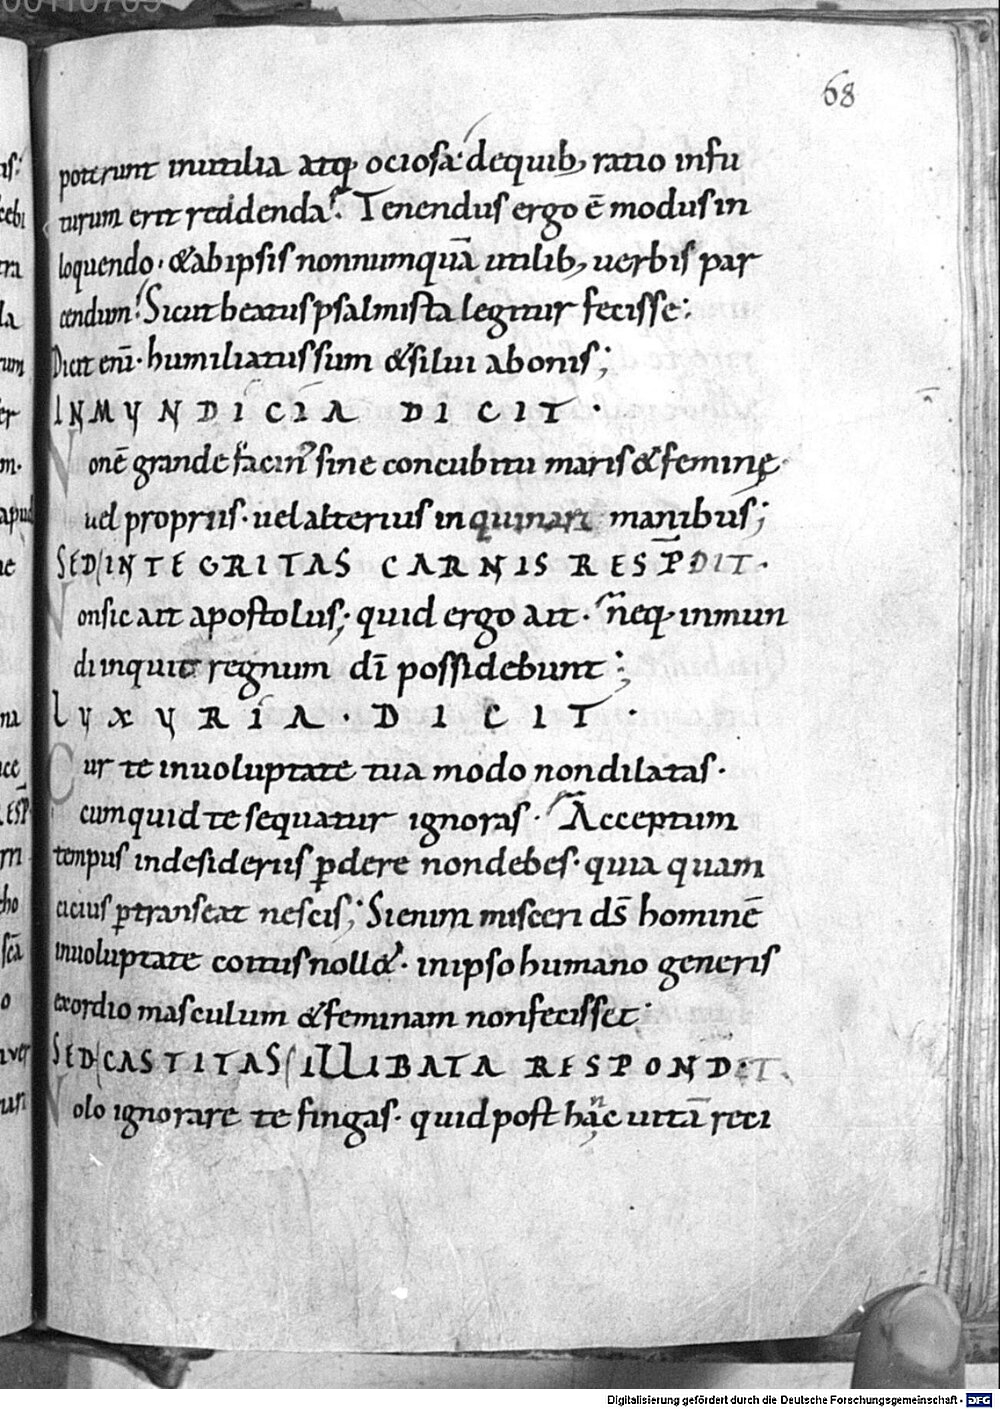 68
poterunt inutilia atq; ociosa: dequib; ratio infu
turum erit reddenda. Tenendus ergo ē modus in
loquendo. & abipsis nonnumquā utilib; uerbis par
cendum. Sicut beatus psalmista legitur fecisse:
Dicit eni. humiliatus sum & silui abonis;
INMUNDICIA DICIT.
Nonē grande facin' sine concubitu maris & feminę.
uel propriis. uel alterius inquinari manibus;
SED INTEGRITAS CARNIS RESP̄DIT.
Nonsic ait apostolus; quid ergo ait. neq. inmun
di inquit regnum dī possidebunt;
LUXURIA. DICIT.
Cur te inuoluptate tua modo nondilatas.
cum quid te sequatur ignoras. Acceptum
tempus indesideriis p̱dere nondebes. quia quam
cicius p̱transeat nescis; Sienim misceri ds̄ hominē
inuoluptate coitus noll&. inipso humano generis
exordio masculum & feminam nonfecisset.
SED CASTITAS ILLIBATA RESPONDIT.
Nolo ignorare te fingas. quid post hanc uitā reci
Digitalisierung gefördert durch die Deutsche Forschungsgemeinschaft - DFG